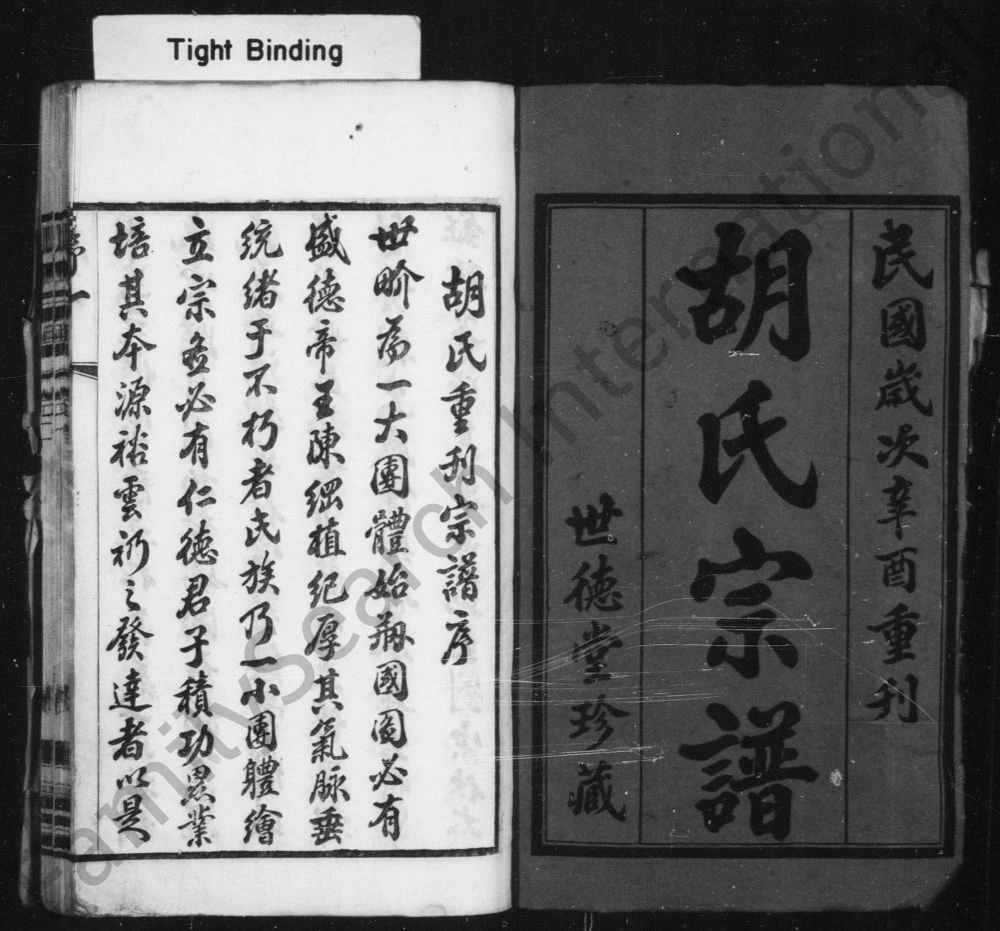 Tight Binding
民國歲次辛酉重刊
胡氏宗譜
世德堂珍藏
胡氏重刊宗譜序
世界為一大團體始剏國圖必有
盛德帝王陳綱植紀厚其氣脉垂
統緒于不朽者氏族乃一小團體繪
立宗盘必有仁德君子積功累業
培其本源裕雲礽之發達者以是
FamilySearch International